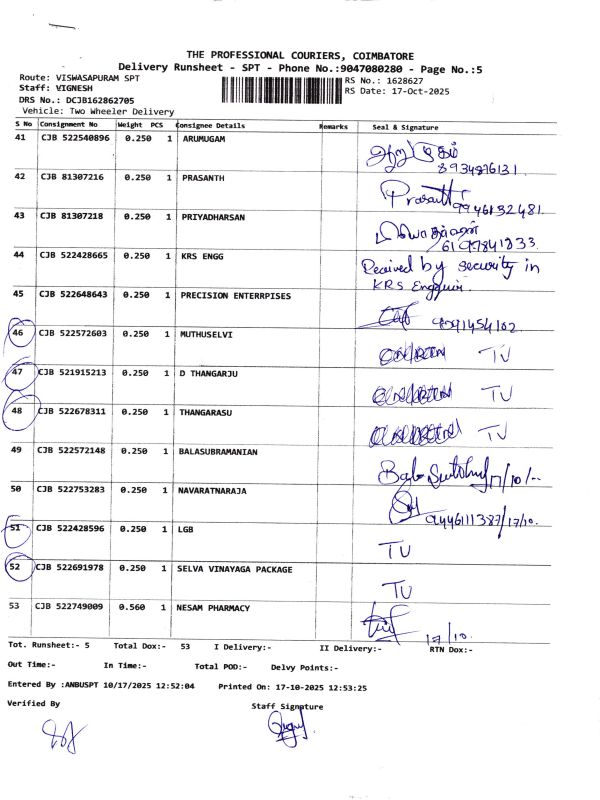 THE PROFESSIONAL COURIERS, COIMBATORE
Delivery Runsheet - SPT - Phone No.:9047080280 - Page No.:5
Route: VISWASAPURAM SPT
RS No.: 1628627
Staff: VIGNESH
RS Date: 17-Oct-2025
DRS No.: DCJB162862705
Vehicle: Two Wheeler Delivery
S No Consignment No Weight PCS Consignee Details Remarks Seal & Signature
41 CJB 522540896 0.250 1 ARUMUGAM
8934876131
42 CJB 81307216 0.250 1 PRASANTH Prasanth
9946132481
43 CJB 81307218 0.250 1 PRIYADHARSAN
6199841233
44 CJB 522428665 0.250 1 KRS ENGG Received by security in
KRS
45 CJB 522648643 0.250 1 PRECISION ENTERRPISES
9091454102
46 CJB 522572603 0.250 1 MUTHUSELVI TU
47 CJB 521915213 0.250 1 D THANGARJU TU
48 CJB 522678311 0.250 1 THANGARASU TU
49 CJB 522572148 0.250 1 BALASUBRAMANIAN 17/10/-
50 CJB 522753283 0.250 1 NAVARATNARAJA
9446111387/17/10.
51 CJB 522428596 0.250 1 LGB
TU
52 CJB 522691978 0.250 1 SELVA VINAYAGA PACKAGE
TU
53 CJB 522749009 0.560 1 NESAM PHARMACY
17/10.
Tot. Runsheet:- 5 Total Dox:- 53 I Delivery:- II Delivery:- RTN Dox:-
Out Time:- In Time:- Total POD:- Delvy Points:-
Entered By :ANBUSPT 10/17/2025 12:52:04 Printed On: 17-10-2025 12:53:25
Verified By Staff Signature